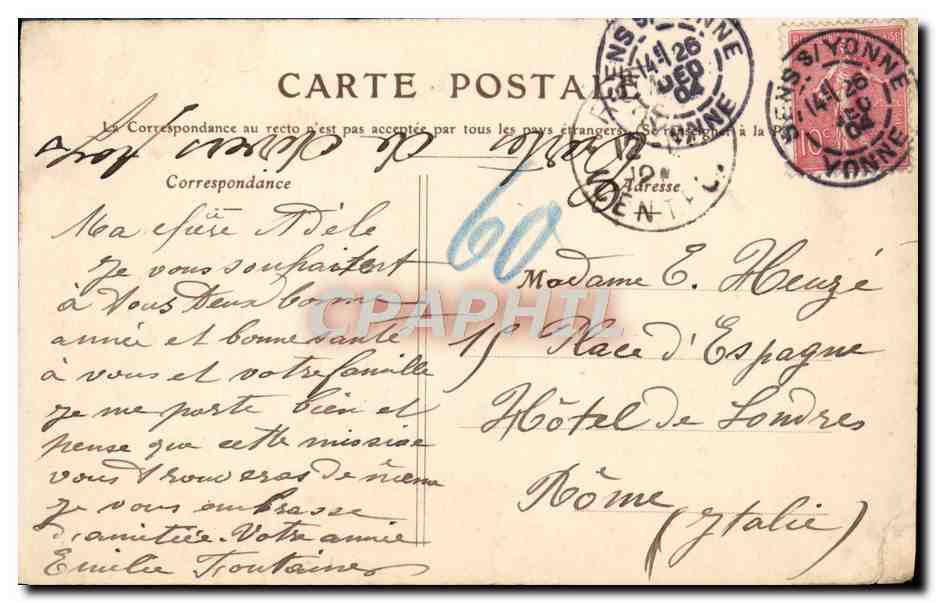 CARTE POSTALE
La Correspondance au recto n'est pas acceptée par tous les pays étrangers. Se renseigner à la P
Correspondance
Adresse
Ma chère Adèle
Je vous souhaitent
à tous deux bonne
année et bonne santé
à vous et votre famille
Je me porte bien et
pense que cette missive
vous trouveras de même
Je vous embrasse
d'amitiée. Votre amie
Emilie Fontaine
60
Madame E. Heuzé
15 Place d'Espagne
Hôtel de Londres
Rôme
(Italie)
SENS S/YONNE
14 26
DEC
04
YONNE
SENS S/YONNE
14 26
DEC
04
YONNE
12
10c
CPAPHIL